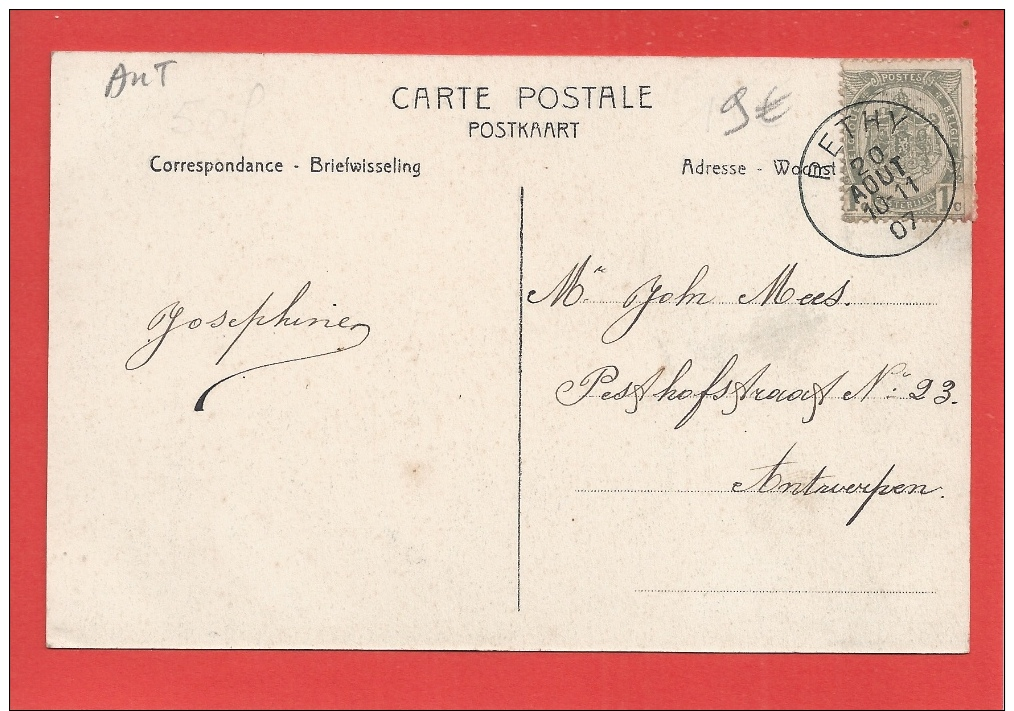 AnT
CARTE POSTALE
9€
POSTKAART
Correspondance - Briefwisseling
Adresse - Woonst
POSTES
BELGIE
RETHY
20
AOUT
10-11
07
1 1
Mr. John Mees.
Josephine
Pesthofstraat No. 23.
Antwerpen.